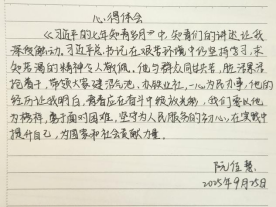 心得体会
《习近平的七年知青岁月》中,知青们的讲述让我
深受触动。习近平总书记在艰苦环境中仍坚持学习,求
知若渴的精神令人敬佩。他与群众同甘共苦,脏活累活
抢着干,带领大家建沼气池、办铁业社,一心为民办事,他的
经历让我明白,青春应在奋斗中绽放光彩,我们要以他
为榜样,勇于面对困难,坚守为人民服务的初心,在实践中
提升自己,为国家和社会贡献力量。
阮佳慧
2025年9月25日